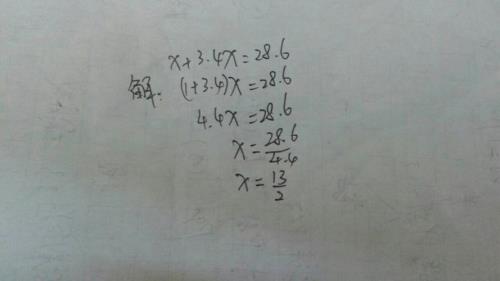 x+3.4x=28.6
解: (1+3.4)x=28.6
4.4x=28.6
x=28.6/4.4
x=13/2